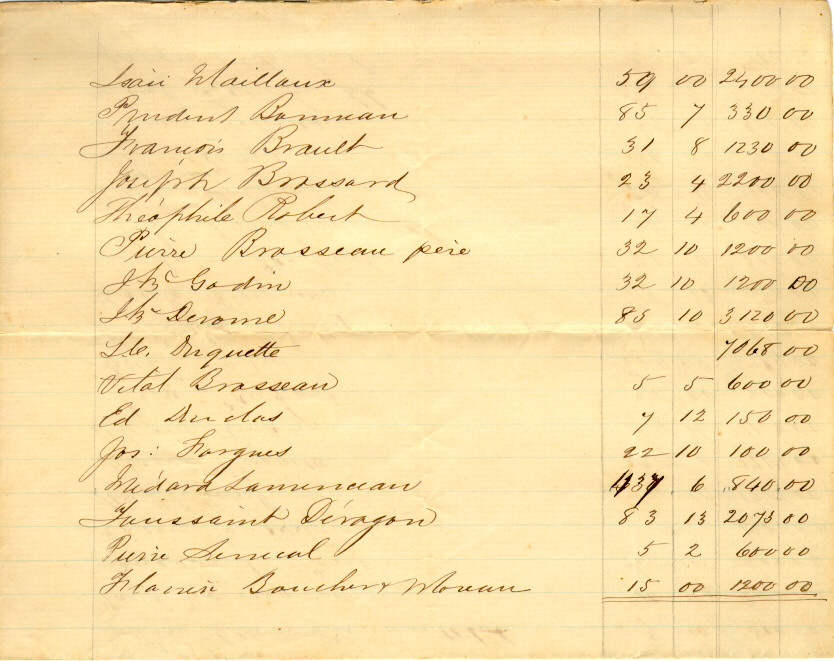 Isaïe Maillaux 59 00 2400 00
Prudent Bonneau 85 7 330 00
Francois Brault 31 8 1230 00
Joséph Brossard 23 4 2200 00
Théophile Robert 17 4 600 00
Pierre Brosseau père 32 10 1200 00
J Bte Godin 32 10 1200 00
J Bte Derome 85 10 3120 00
Duquette 7068 00
Vital Brosseau 5 5 600 00
Ed Duclos 7 12 150 00
Jos: Forgues 22 10 100 00
Médard Lamimeau 6 840 00
Toussaint Déragon 83 13 2073 00
Pierre Senecal 5 2 600 00
Boucher Moreau 15 00 1200 00